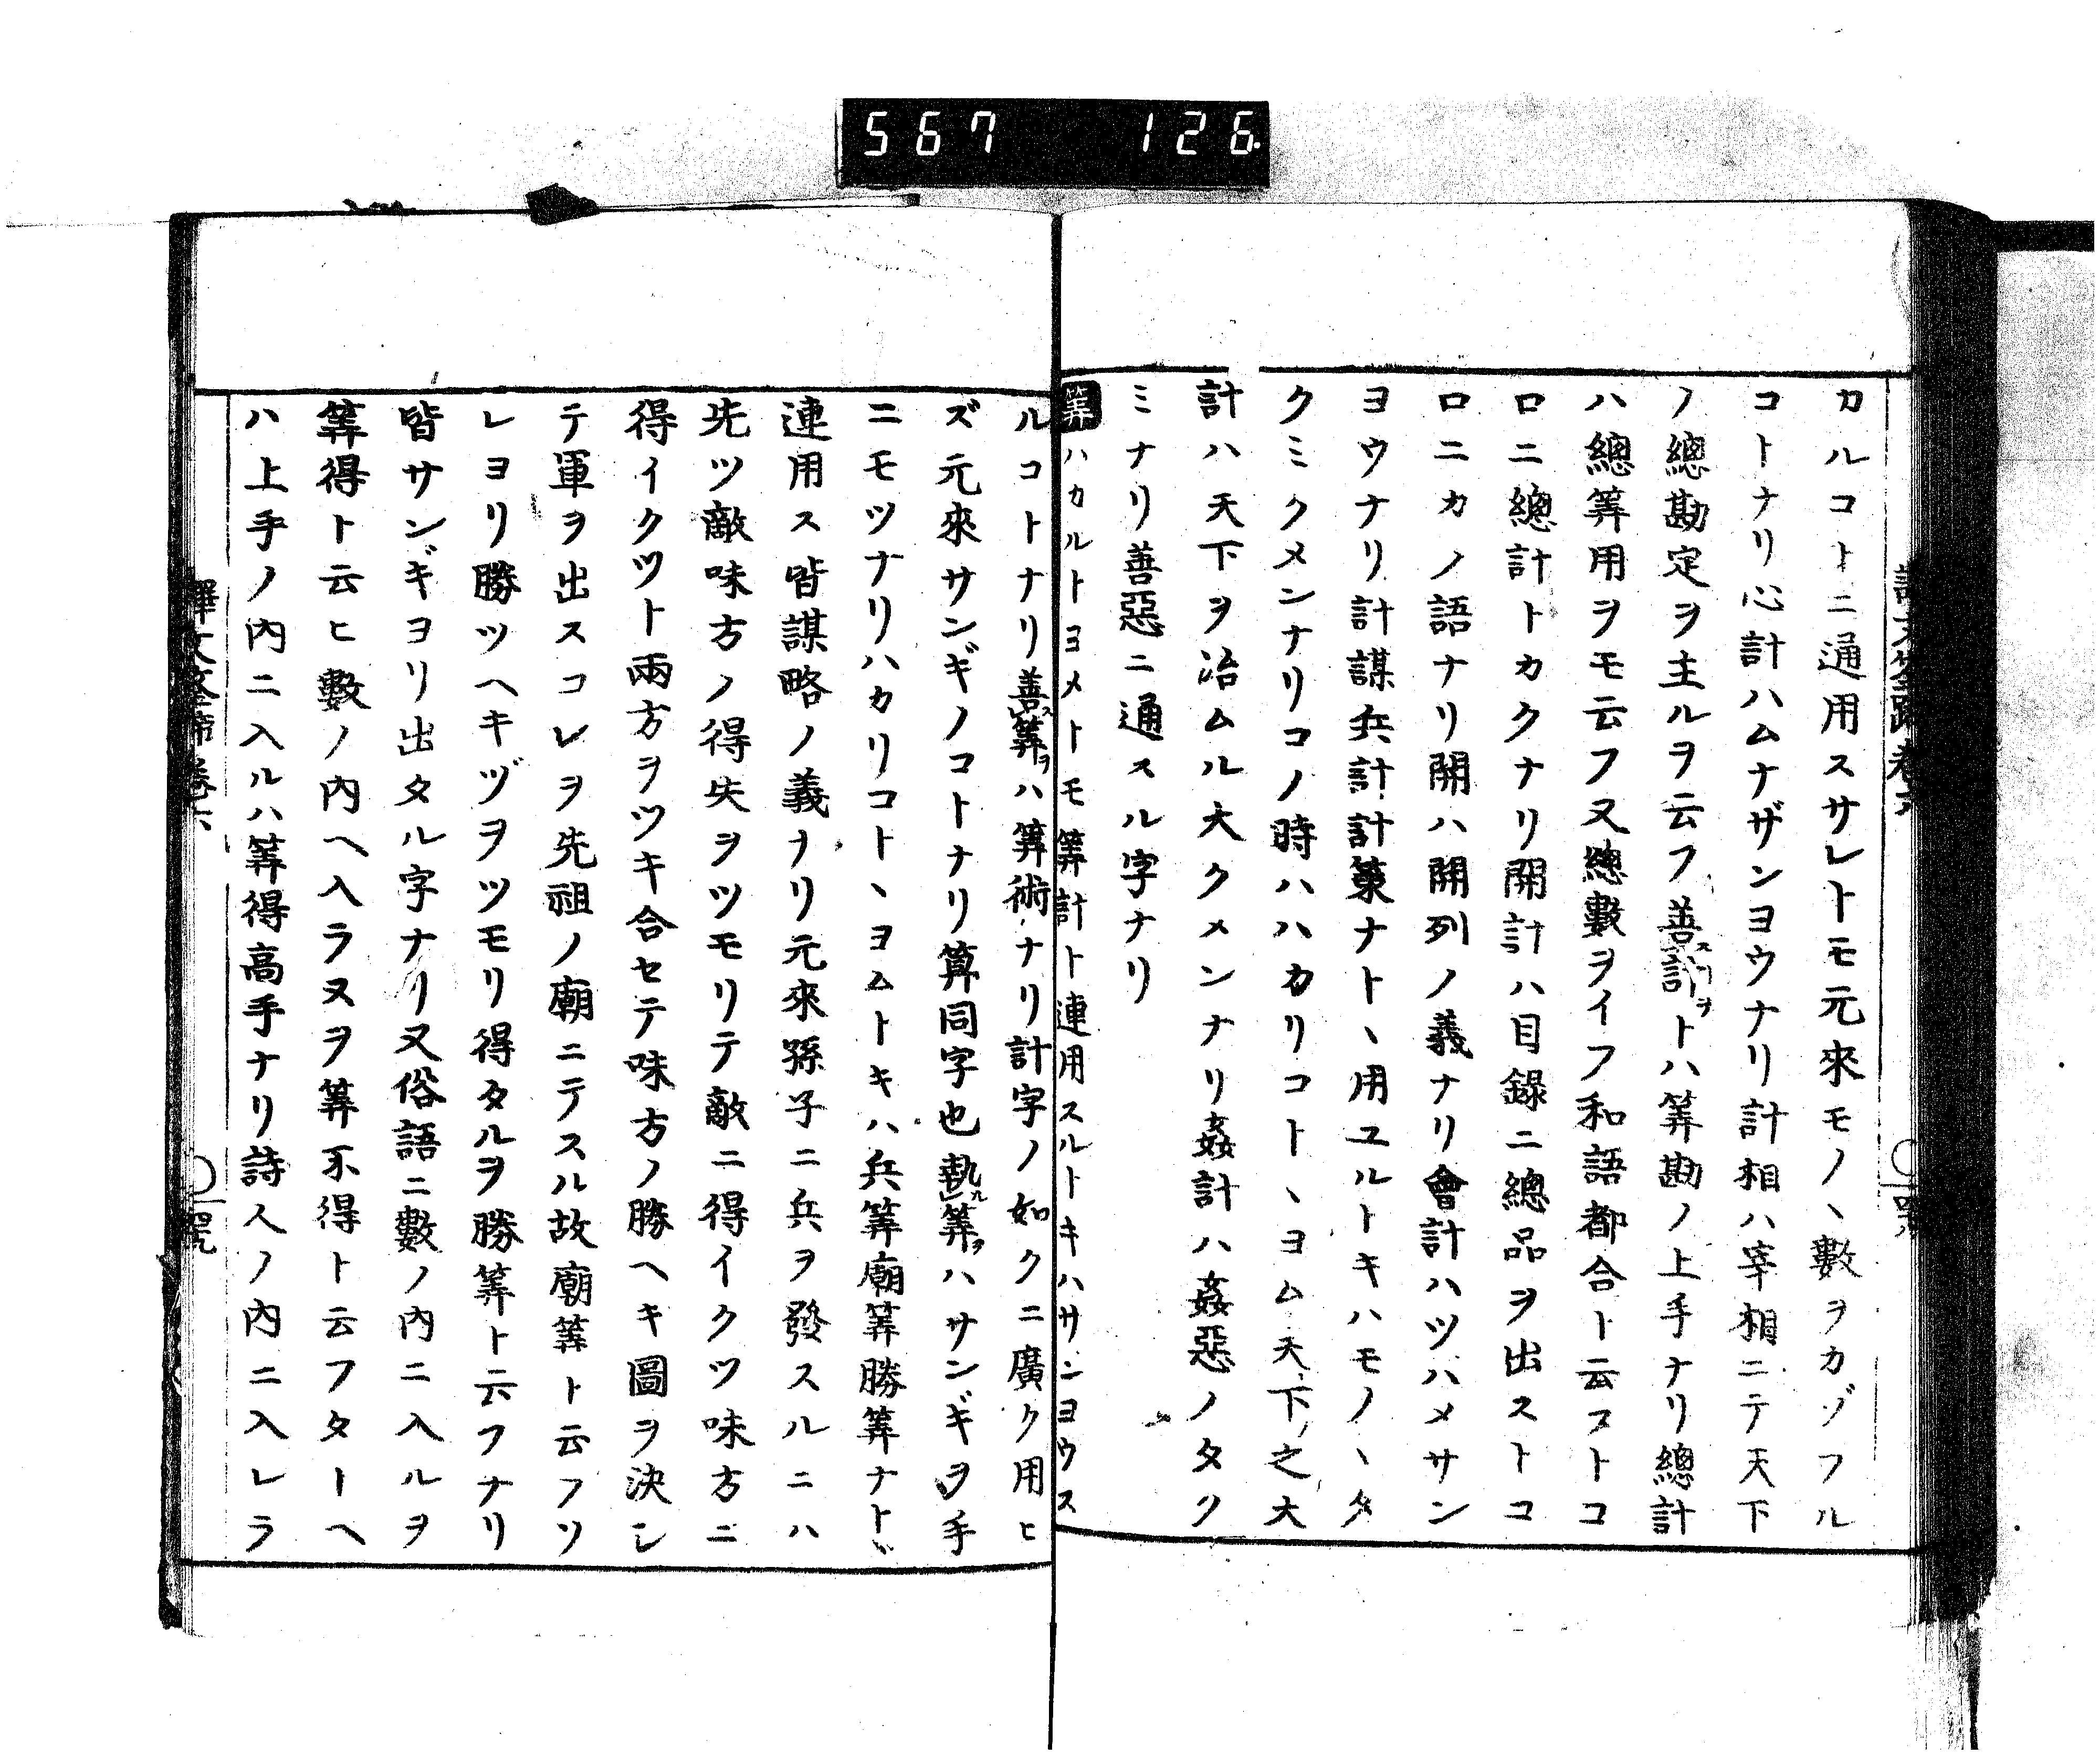 567 126
カルコトニ通用スサレトモ元來モノヽ數ヲカゾフル
コトナリ心計ハムナザンヨウナリ計相ハ宰相ニテ天下
ノ總勘定ヲ主ルヲ云フ善計トハ筭勘ノ上手ナリ總計
ハ總筭用ヲモ云フ又總數ヲイフ和語都合ト云フトコ
ロニ總計トカクナリ開計ハ目録ニ總品ヲ出ストコ
ロニカノ語ナリ開ハ開列ノ義ナリ會計ハツハメサン
ヨウナリ計謀兵計計策ナトヽ用ユルトキハモノヽタ
クミクメンナリコノ時ハハカリコトヽヨム天下之大
計ハ天下ヲ治ムル大クメンナリ姦計ハ姦惡ノタク
ミナリ善惡ニ通スル字ナリ
筭ハカルトヨメトモ筭計ト連用スルトキハサンヨウス
ルコトナリ善筭ハ筭術ナリ計字ノ如クニ廣ク用ヒ
ズ元來サンギノコトナリ算同字也執筭ハサンギヲ手
ニモツナリハカリコトヽヨムトキハ兵筭廟筭勝筭ナト
連用ス皆謀略ノ義ナリ元來孫子ニ兵ヲ發スルニハ
先ツ敵味方ノ得失ヲツモリテ敵ニ得イクツ味方ニ
得イクツト兩方ヲツキ合セテ味方ノ勝ヘキ圖ヲ決シ
テ軍ヲ出スコレヲ先祖ノ廟ニテスル故廟筭ト云フソ
レヨリ勝ツヘキヅヲツモリ得タルヲ勝筭ト云フナリ
皆サンギヨリ出タル字ナリ又俗語ニ數ノ内ニ入ルヲ
筭得ト云ヒ數ノ内ヘ入ラヌヲ筭不得ト云フタトヘ
ハ上手ノ内ニ入ルハ筭得高手ナリ詩人ノ内ニ入レラ